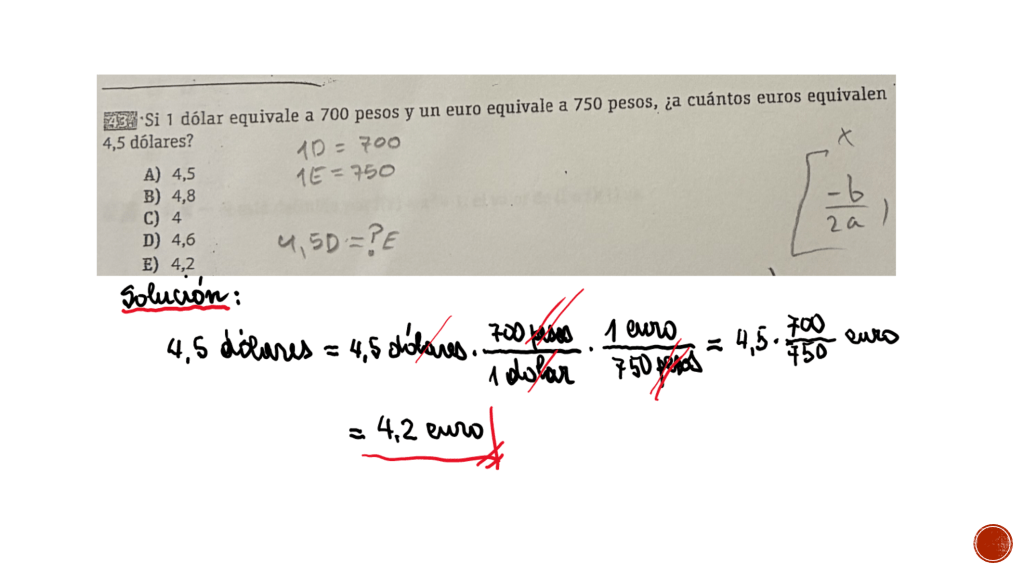 43. Si 1 dólar equivale a 700 pesos y un euro equivale a 750 pesos, ¿a cuántos euros equivalen
4,5 dólares?
1D = 700
1E = 750
A) 4,5
B) 4,8
C) 4
D) 4,6
E) 4,2
4,5D = ?E
x
-b
2a )
Solución:
4,5 dólares = 4,5 dólares · 700 pesos / 1 dolar · 1 euro / 750 pesos = 4,5 · 700 / 750 euro
= 4,2 euro